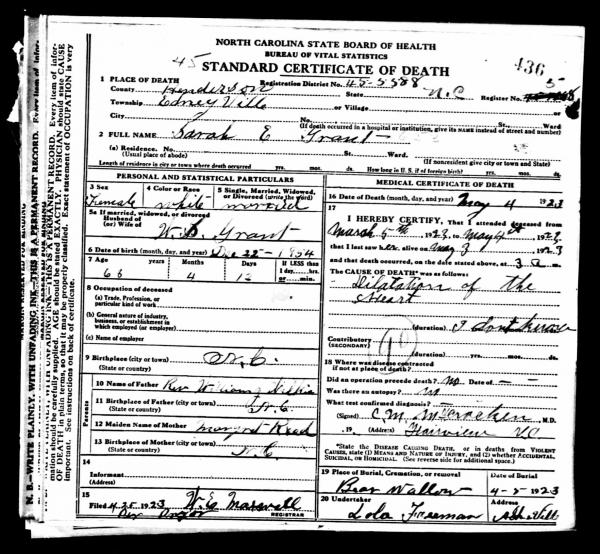 NORTH CAROLINA STATE BOARD OF HEALTH
BUREAU OF VITAL STATISTICS
45 STANDARD CERTIFICATE OF DEATH 436
1 PLACE OF DEATH Registration District No. 45-5588 5
County Henderson State N.C. Register No.
Township Edney Ville or Village
City No. St. Ward
(If death occurred in a hospital or institution, give its NAME instead of street and number)
2 FULL NAME Sarah E Grant
(a) Residence. No. St. Ward.
(Usual place of abode) (If nonresident give city or town and State)
Length of residence in city or town where death occurred yrs. mos. ds. How long in U. S., if of foreign birth? yrs. mos. ds.
PERSONAL AND STATISTICAL PARTICULARS
3 Sex 4 Color or Race 5 Single, Married, Widowed, or Divorced (write the word)
Female white married
5a If married, widowed, or divorced
Husband of
(or) Wife of W. Grant
6 Date of birth (month, day, and year) Dec 22 - 1854
7 Age Years Months Days If LESS than 1 day, hrs. or min.
68 4 12
8 Occupation of deceased
(a) Trade, Profession, or particular kind of work
(b) General nature of industry, business, or establishment in which employed (or employer)
(c) Name of employer
9 Birthplace (city or town) N.C.
(State or country)
Parents
10 Name of Father Rev. William
11 Birthplace of Father (city or town) N.C.
(State or country)
12 Maiden Name of Mother Margret Reed
13 Birthplace of Mother (city or town) N.C.
(State or country)
14
Informant
(Address)
15
Filed 4-25-1923 W. E. Maxwell
REGISTRAR
MEDICAL CERTIFICATE OF DEATH
16 Date of Death (month, day, and year) May 4 1923
17
I HEREBY CERTIFY, That I attended deceased from
March 5th, 1923, to May 4th, 1923
that I last saw her alive on May 3 1923
and that death occurred, on the date stated above, at 3 a m.
The CAUSE OF DEATH* was as follows:
Dilatation of the
Heart
(duration) I dont know
Contributory
(SECONDARY)
(duration) yrs. mos. ds.
18 Where was disease contracted
if not at place of death?
Did an operation precede death? no Date of —
Was there an autopsy? no
What test confirmed diagnosis? —
(Signed) C. M. McCracken M.D.
, 19 (Address) Fairview N.C.
*State the DISEASE CAUSING DEATH, or in deaths from VIOLENT CAUSES, state (1) MEANS AND NATURE OF INJURY, and (2) whether ACCIDENTAL, SUICIDAL, or HOMICIDAL. (See reverse side for additional space.)
19 Place of Burial, Cremation, or removal Date of Burial
Bear Wallow 4-5 1923
20 Undertaker Address
Lola Freeman Ash Ville
N. B.—WRITE PLAINLY, WITH UNFADING INK—THIS IS A PERMANENT RECORD. Every item of information should be carefully supplied. AGE should be stated EXACTLY. PHYSICIAN should state CAUSE OF DEATH in plain terms, so that it may be properly classified. Exact statement of OCCUPATION is very important. See instructions on back of certificate.